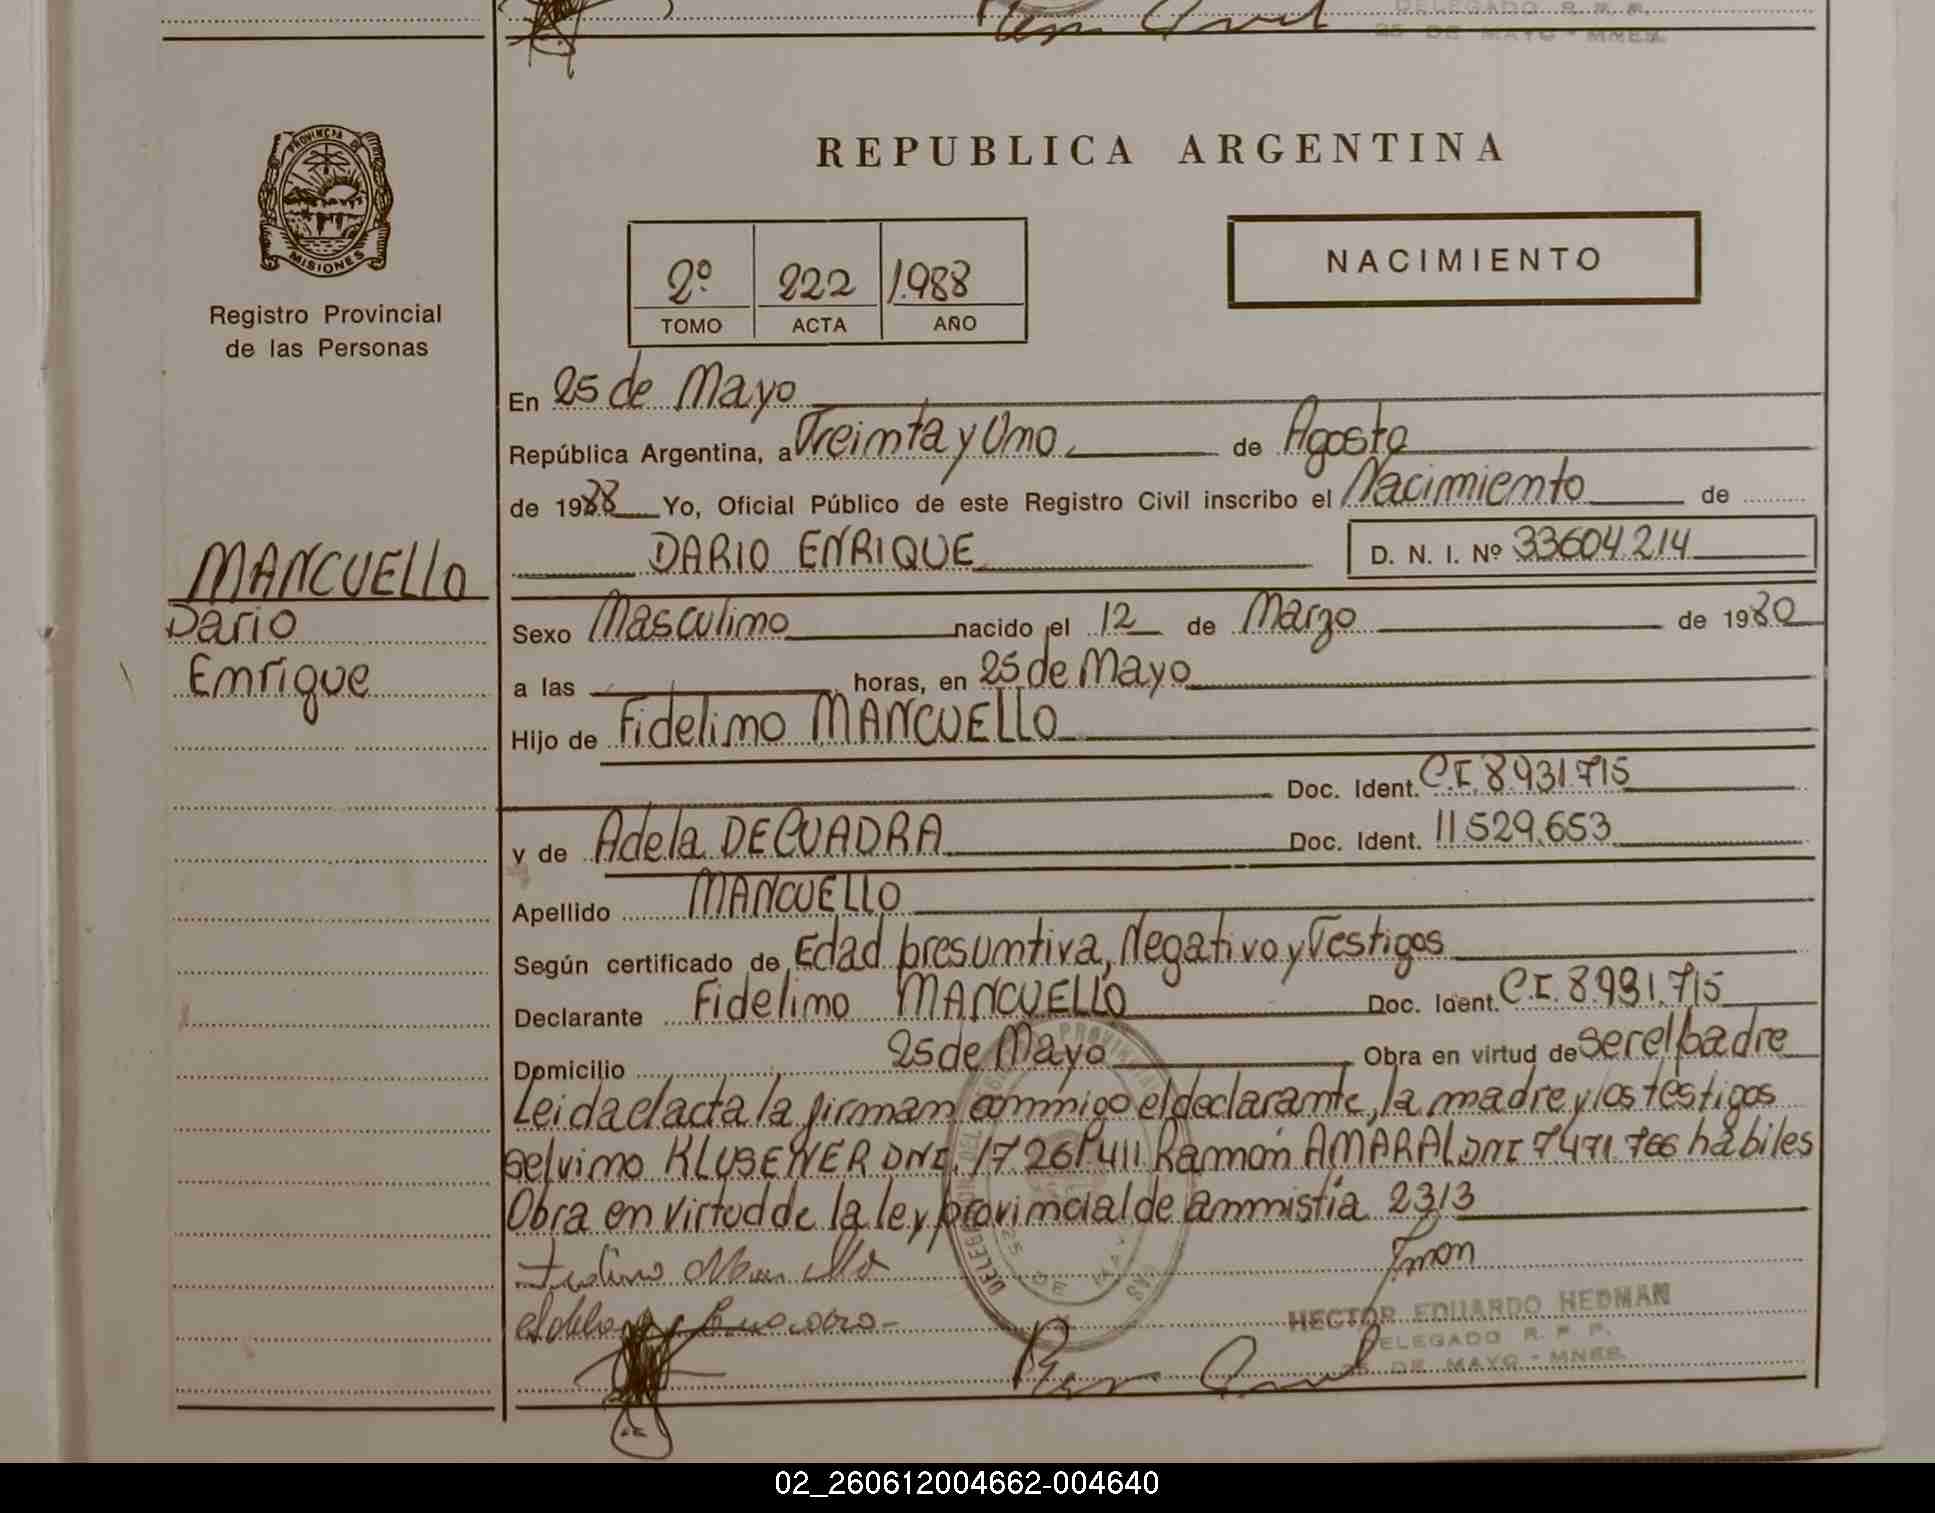 DELEGADO R. P. P.
25 DE MAYO - MNES.
PROVINCIA DE
MISIONES
Registro Provincial
de las Personas
REPUBLICA ARGENTINA
2º 222 1.988
TOMO ACTA AÑO
NACIMIENTO
En 25 de Mayo
República Argentina, a Treinta y Uno de Agosto
de 1988 Yo, Oficial Público de este Registro Civil inscribo el Nacimiento de
DARIO ENRIQUE D. N. I. Nº 33604.214
MANCUELLO
Dario
Enrique
Sexo Masculino nacido el 12 de Marzo de 1980
a las horas, en 25 de Mayo
Hijo de Fidelino MANCUELLO
Doc. Ident. C.I. 8.931.715
y de Adela DECUADRA Doc. Ident. 11.529.653
Apellido MANCUELLO
Según certificado de Edad presumtiva, Negativo y Testigos
Declarante Fidelino MANCUELLO Doc. Ident. C.I. 8.931.715
Domicilio 25 de Mayo Obra en virtud de ser el padre
Leida el acta la firman conmigo el declarante, la madre y los testigos
Selvino KLUSENER DNI. Ramón AMARAL DNI 7471.766 hábiles
Obra en virtud de la ley provincial de ammistía 2313
HECTOR EDUARDO HEDMAN
DELEGADO R. P. P.
25 DE MAYO - MNES.
02_260612004662-004640